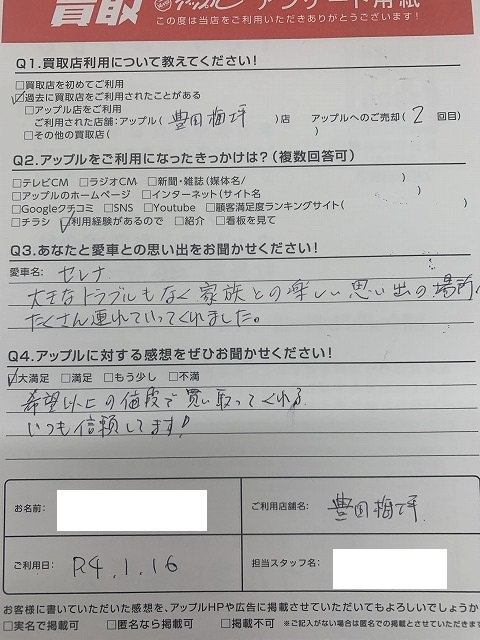 買取 アップル アンケート用紙
この度は当店をご利用いただきありがとうございます!
Q1.買取店利用について教えてください!
□買取店を初めてご利用
☑過去に買取店をご利用されたことがある
□アップル店をご利用
ご利用された店舗:アップル( 豊田梅坪 )店 アップルへのご売却( 2 回目)
□その他の買取店( )
Q2.アップルをご利用になったきっかけは?(複数回答可)
□テレビCM □ラジオCM □新聞・雑誌(媒体名/ )
□アップルのホームページ □インターネット(サイト名 )
□Googleクチコミ □SNS □Youtube □顧客満足度ランキングサイト( )
□チラシ ☑利用経験があるので □紹介 □看板を見て
Q3.あなたと愛車との思い出をお聞かせください!
愛車名: セレナ
大きなトラブルもなく家族との楽しい思い出の場所へ
たくさん連れていってくれました。
Q4.アップルに対する感想をぜひお聞かせください!
☑大満足 □満足 □もう少し □不満
希望以上の値段で買い取ってくれる
いつも信頼してます!
お名前: ご利用店舗名: 豊田梅坪
ご利用日: R4.1.16 担当スタッフ名:
お客様に書いていただいた感想を、アップルHPや広告に掲載させていただいてもよろしいでしょうか
□実名で掲載可 □匿名なら掲載可 □掲載不可 ※ご記入がない場合は匿名での掲載とさせていただきます